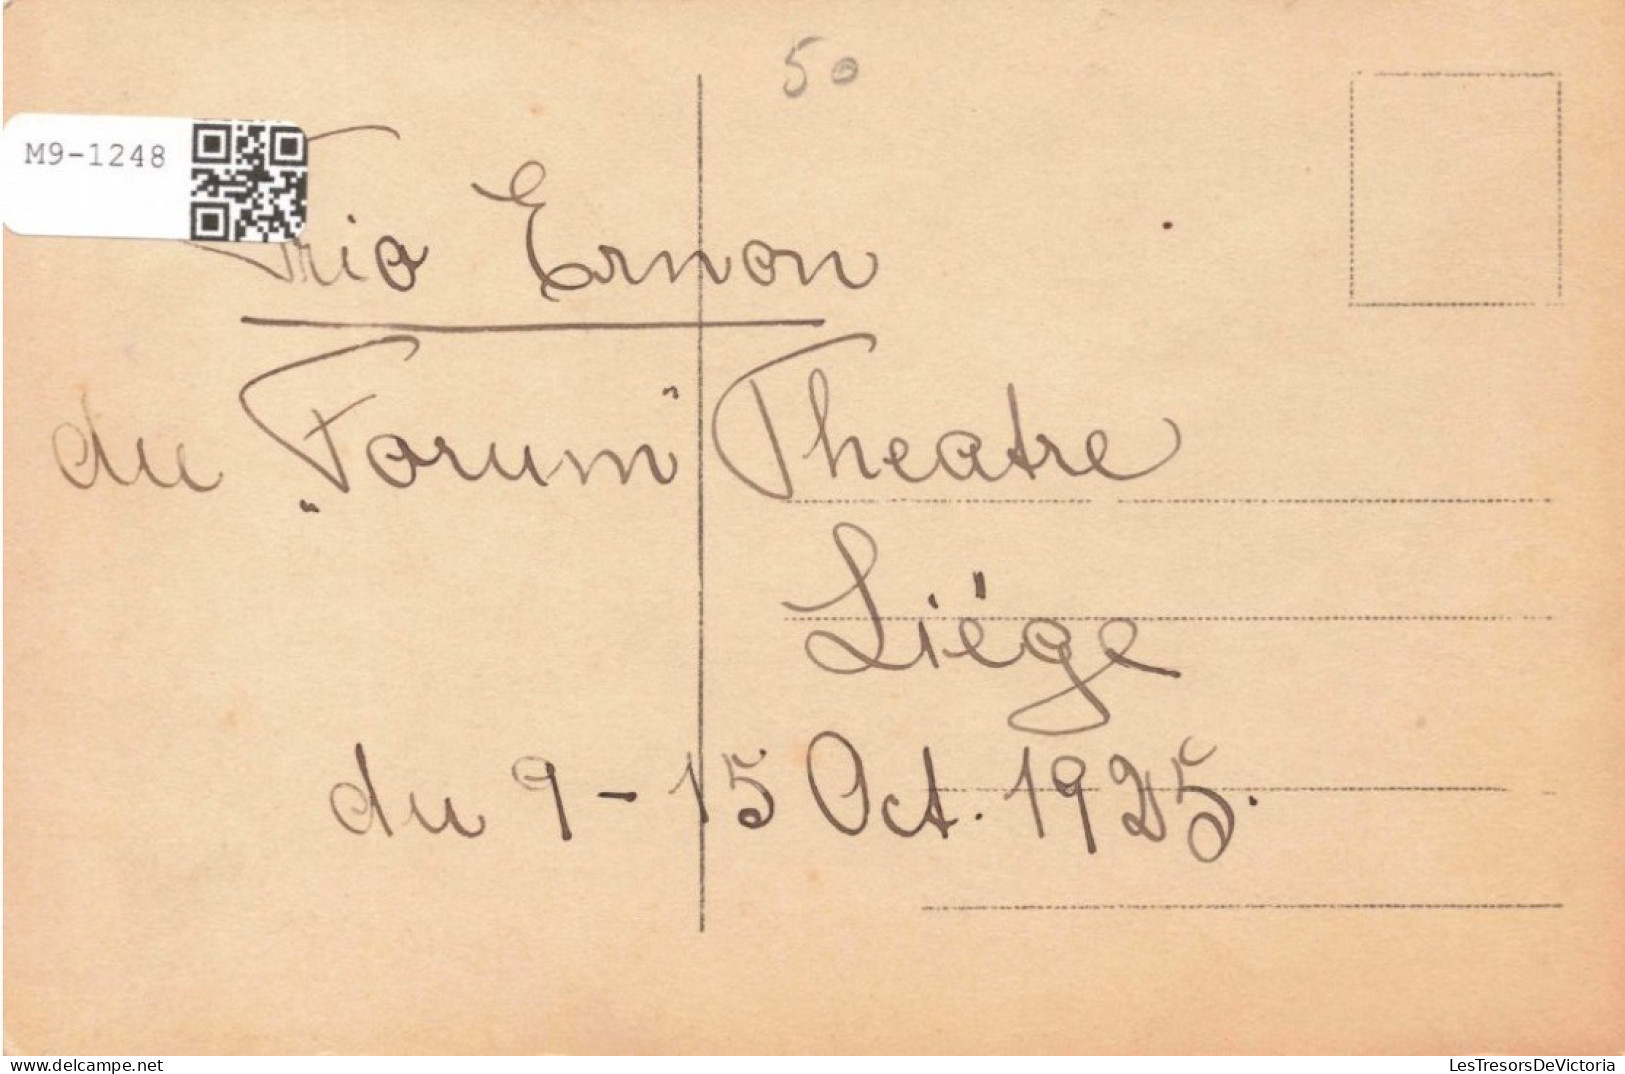 50
M9-1248
Trio Ernon
du "Forum" Theatre
Liége
du 9-15 Oct. 1925.
M9-1248
LesTresorsDeVictoria